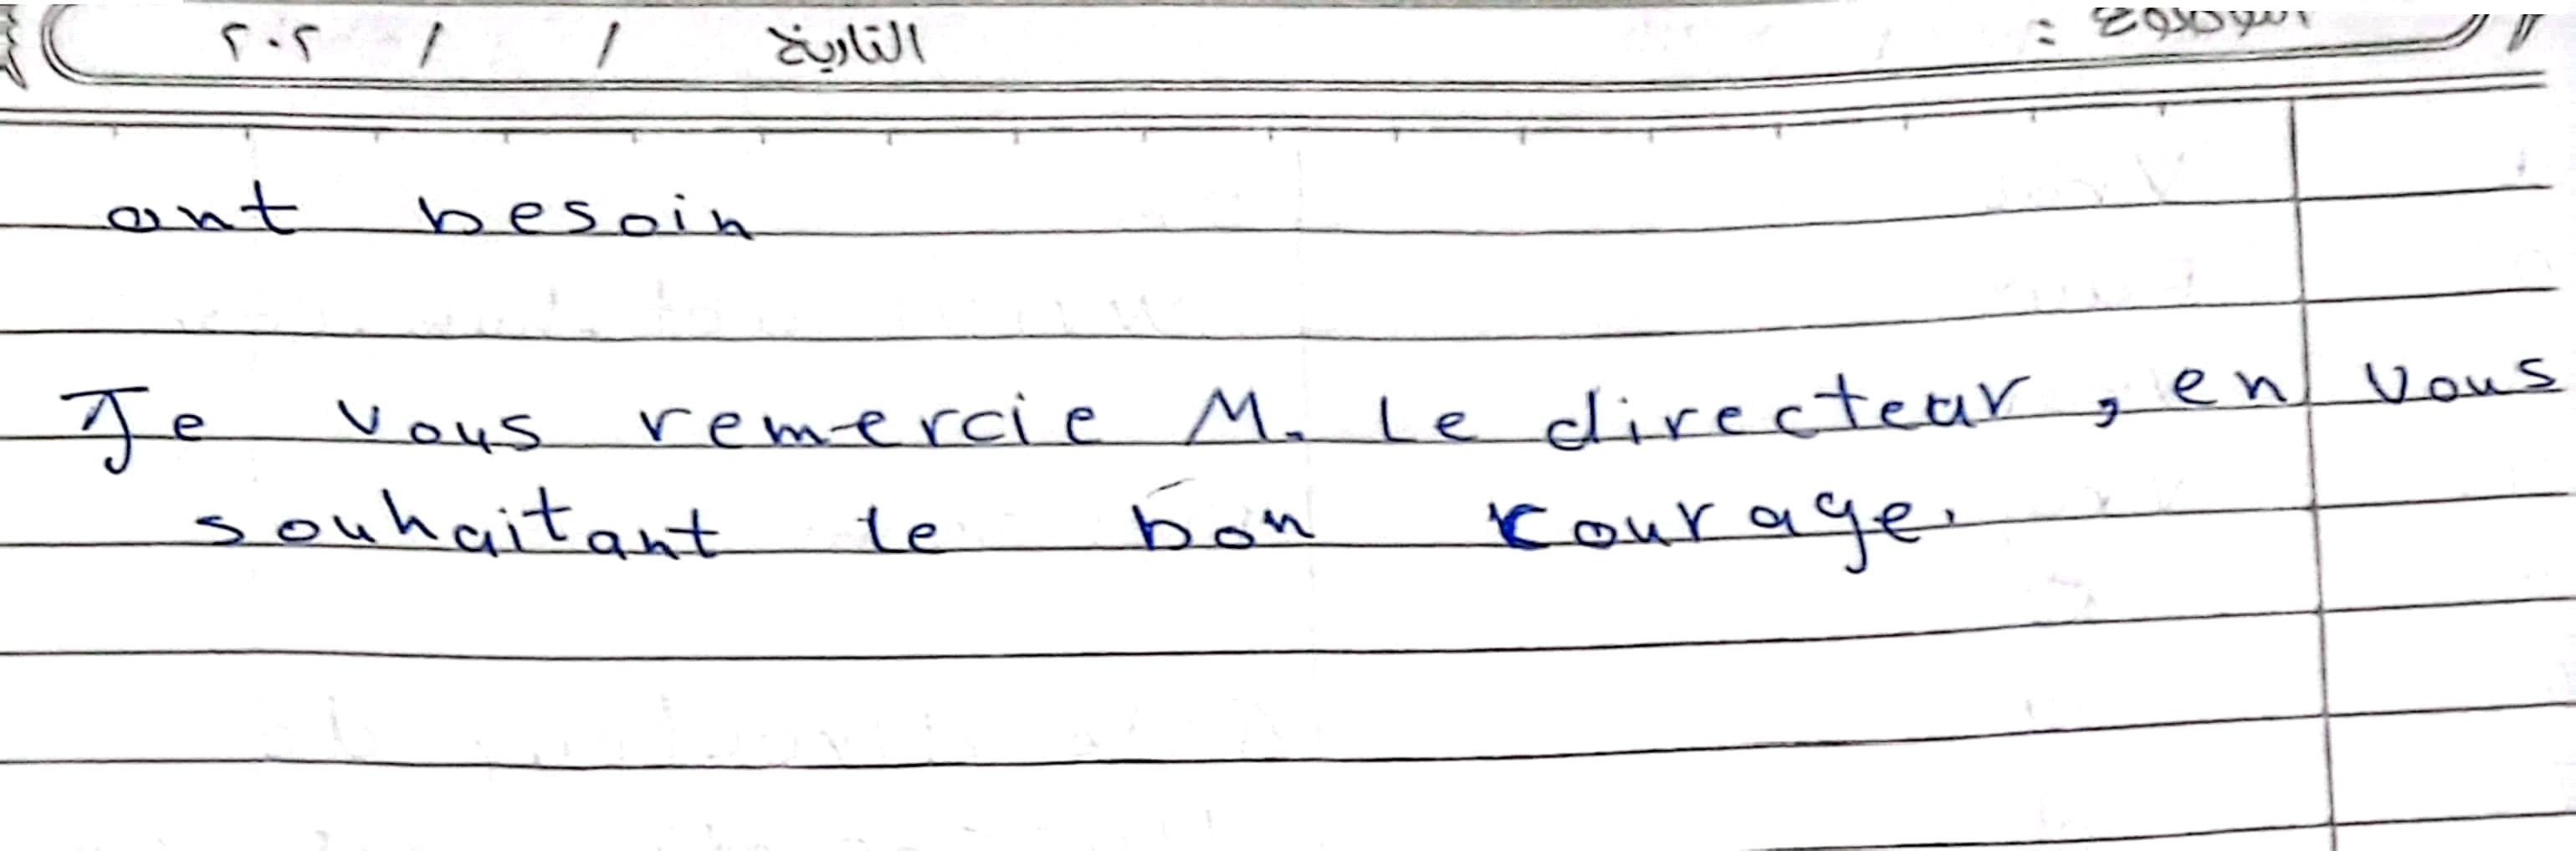 الموضوع :
التاريخ / / ٢٠٢
ont besoin
Je vous remercie M. Le directeur, en vous
souhaitant le bon courage.